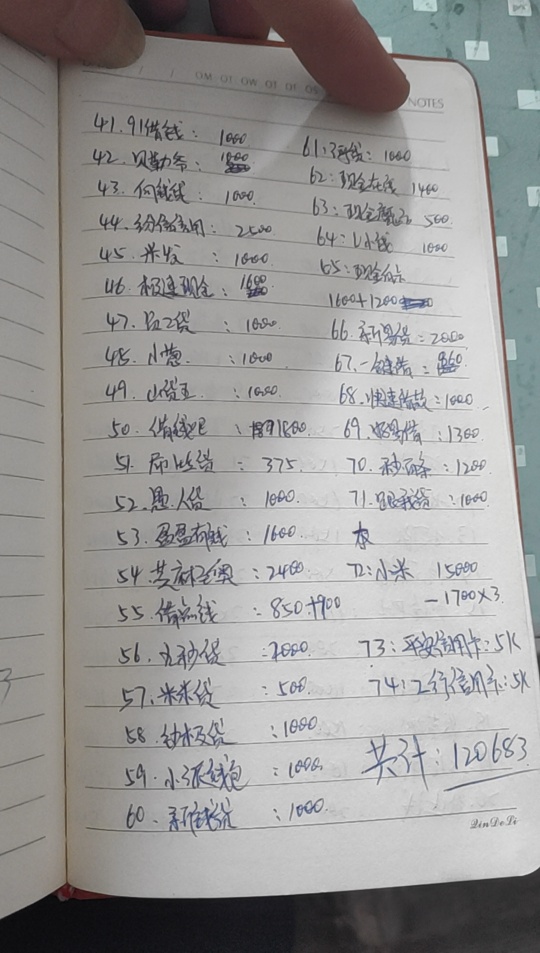 NOTES
41. 91借钱: 1000
42. 贝勒爷:
43. 何钱钱: 1000.
44. 分信用: 2500
45. 米发: 1000.
46. 极速现金: 1600
47. 员工贷: 1000
48. 小葱: 1000
49. 山货王: 1000.
50. 借钱吧: 1800.
51. 即比贷: 375
52. 愚人贷: 1000.
53. 盈盈有钱: 1600
54. 芝麻: 2400
55. 借点钱: 850+900
56. 九秒贷: 2000
57. 米米贷: 500.
58. 钞极贷: 1000
59. 小派钱包: 1000.
60. 新 贷: 1000.
61: 钱: 1000
62: 现金在线 1400
63: 现金 500.
64: 小钱 1000
65: 现金
1600+1200
66. 新易贷: 2000
67. 一 借:
68. 快速借款: 1000
69. 好易借: 1300
70. 秒 条: 1200
71. 贷: 1000
72: 小米 15000
-1700×3.
73: 平安信用卡: 5K
74: 工行信用卡: 5K
共计: 120683
LinDeLi